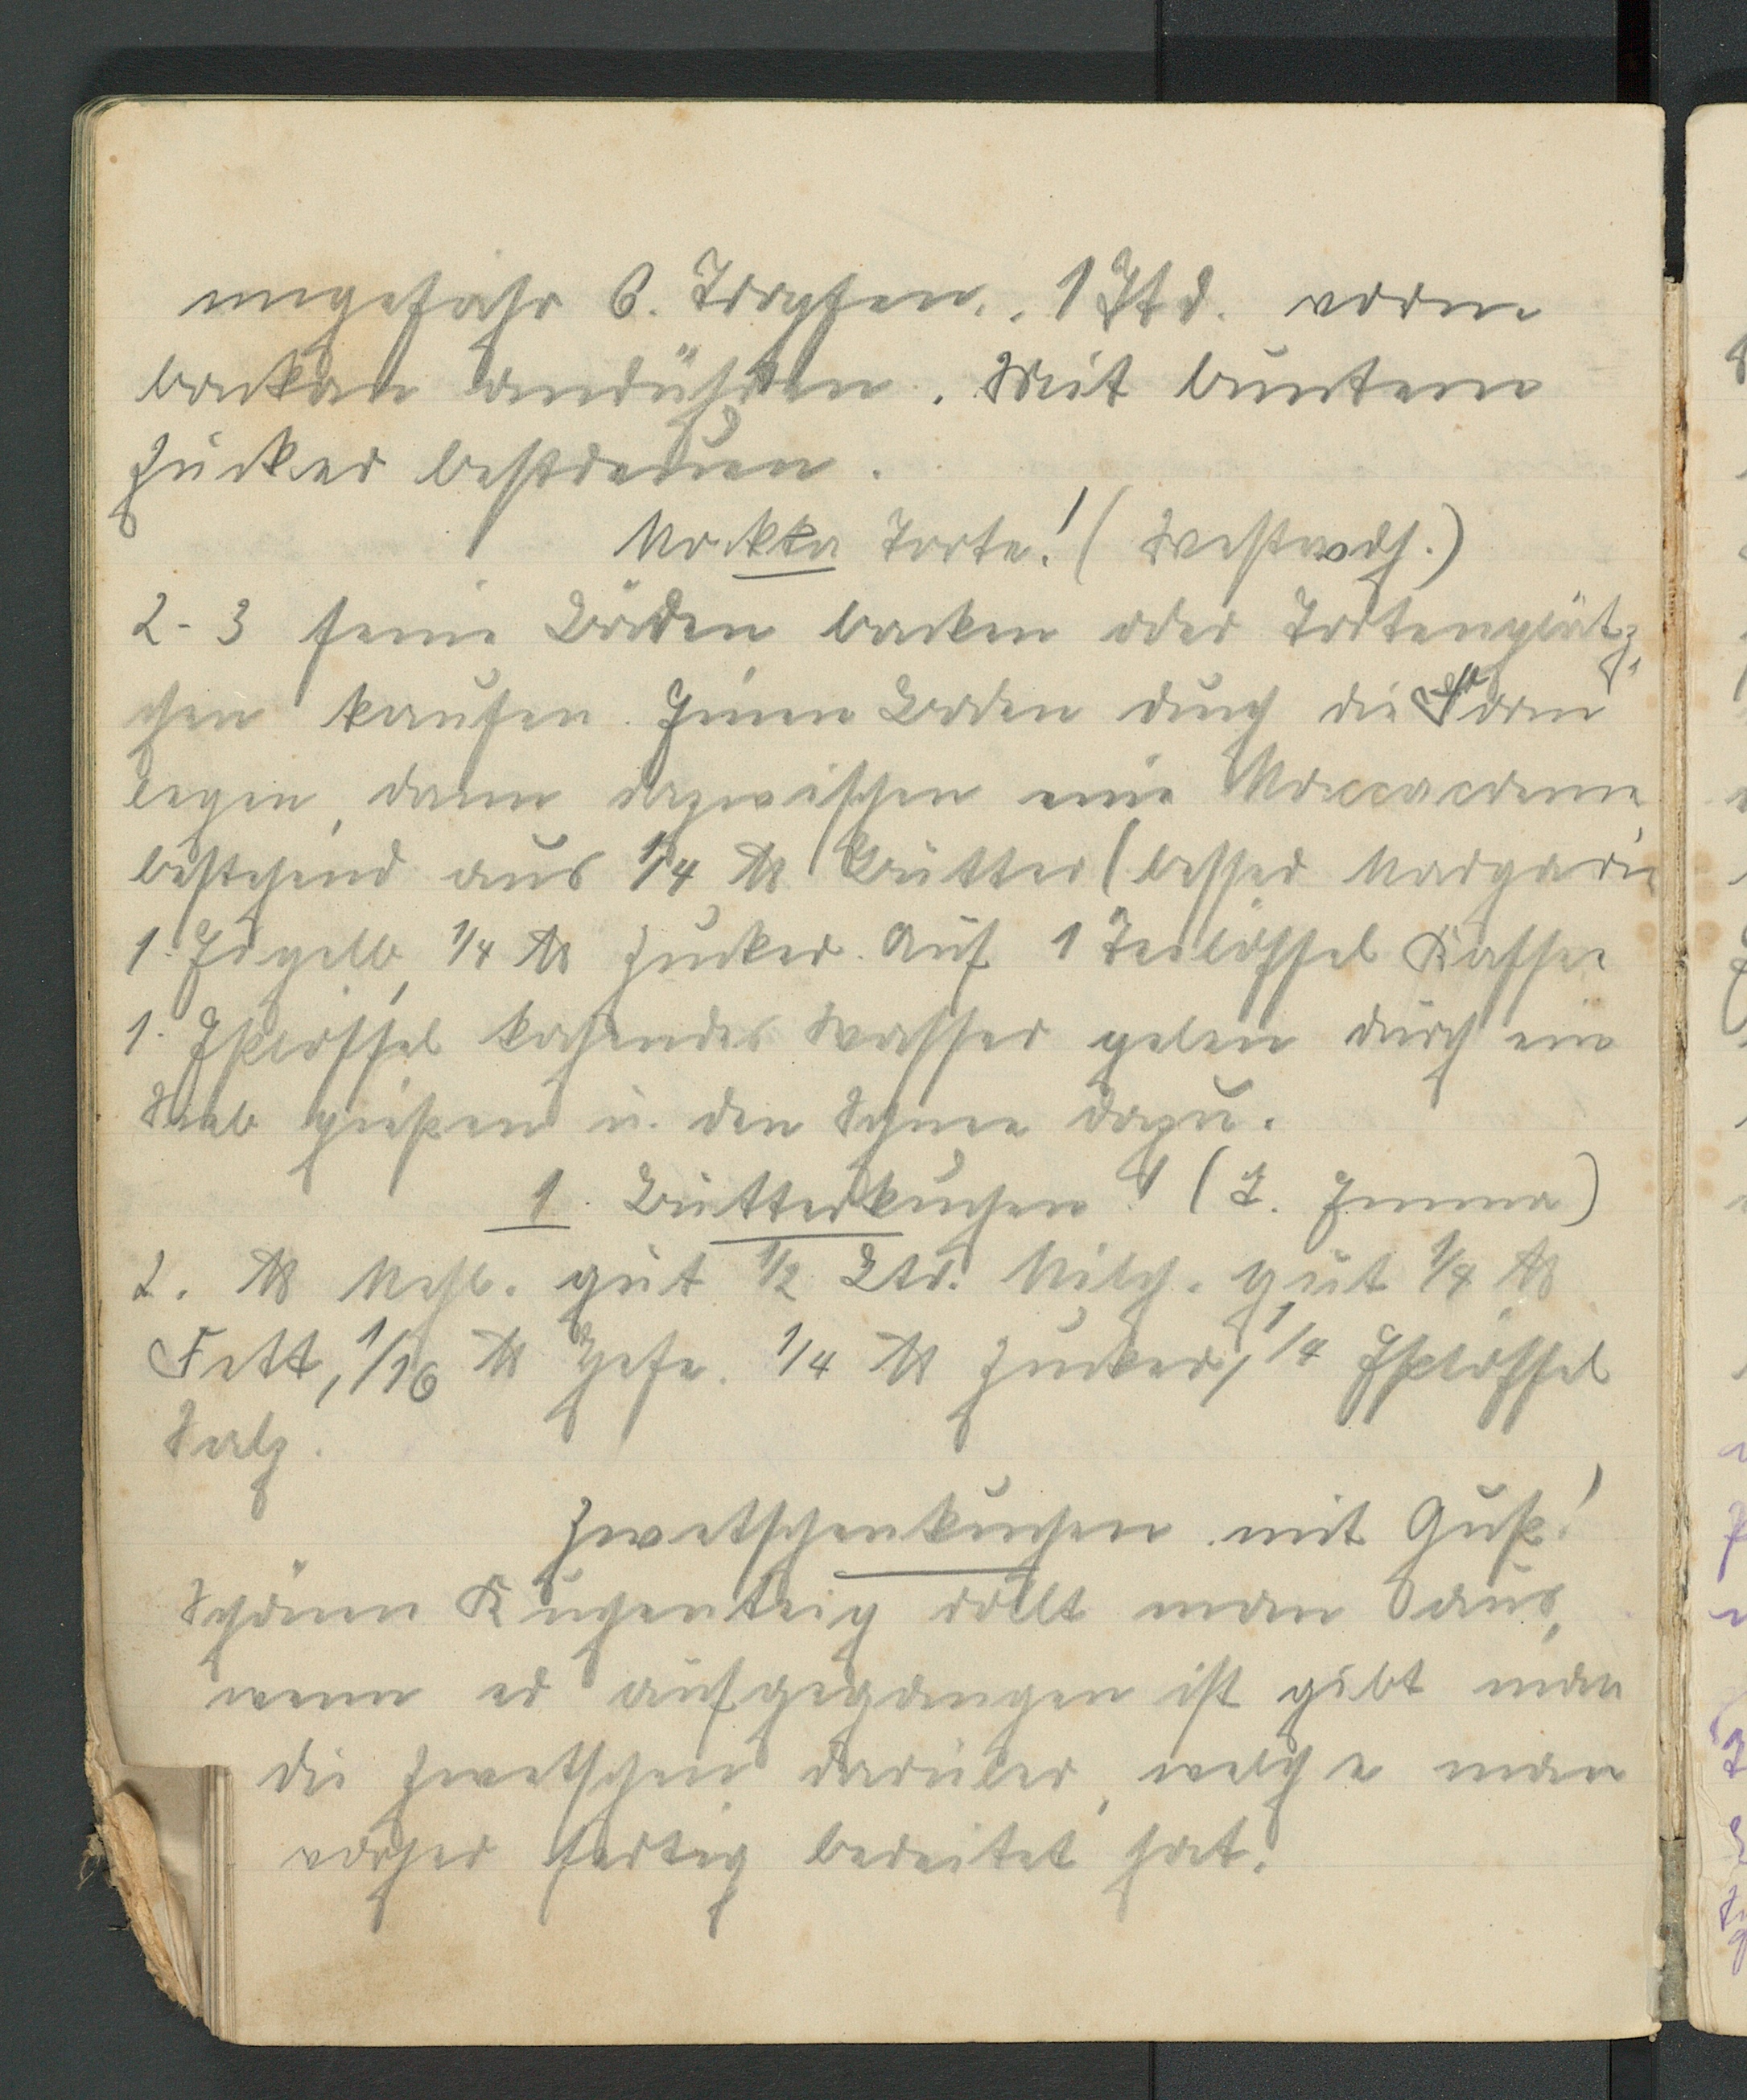 ungefähr 6. Tropfen. . 1 Std. vorm
backen anrühren. Mit buntem
Zucker bestreuen.
Mokka Torte! (
2-3 feine Böden backen oder Tortenplätz-
chen kaufen. Einen Boden durch die Form
legen, dann dazwischen eine Moccacreme,
bestehend aus 1/4 ℔ Butter (besser Margarin
1. Eigelb, 1/4 ℔ Zucker. Auf 1 Teelöffel Kaffee
1. Eßlöffel kochendes Wasser geben durch ein
Sieb gießen u. den Schnee dazu.
1. Butterkuchen! (T. Emma)
2. ℔ Mehl. gut 1/2 Ltr. Milch. gut 1/4 ℔
Fett, 1/16 ℔ Hefe. 1/4 ℔ Zucker, 1/4 Eßlöffel
Salz.
Zwetschenkuchen mit Guß!
Schönen Kuchenteig rollt man aus,
wenn er aufgegangen ist gibt man
die Zwetschen darüber, welche man
vorher fertig bereitet hat.